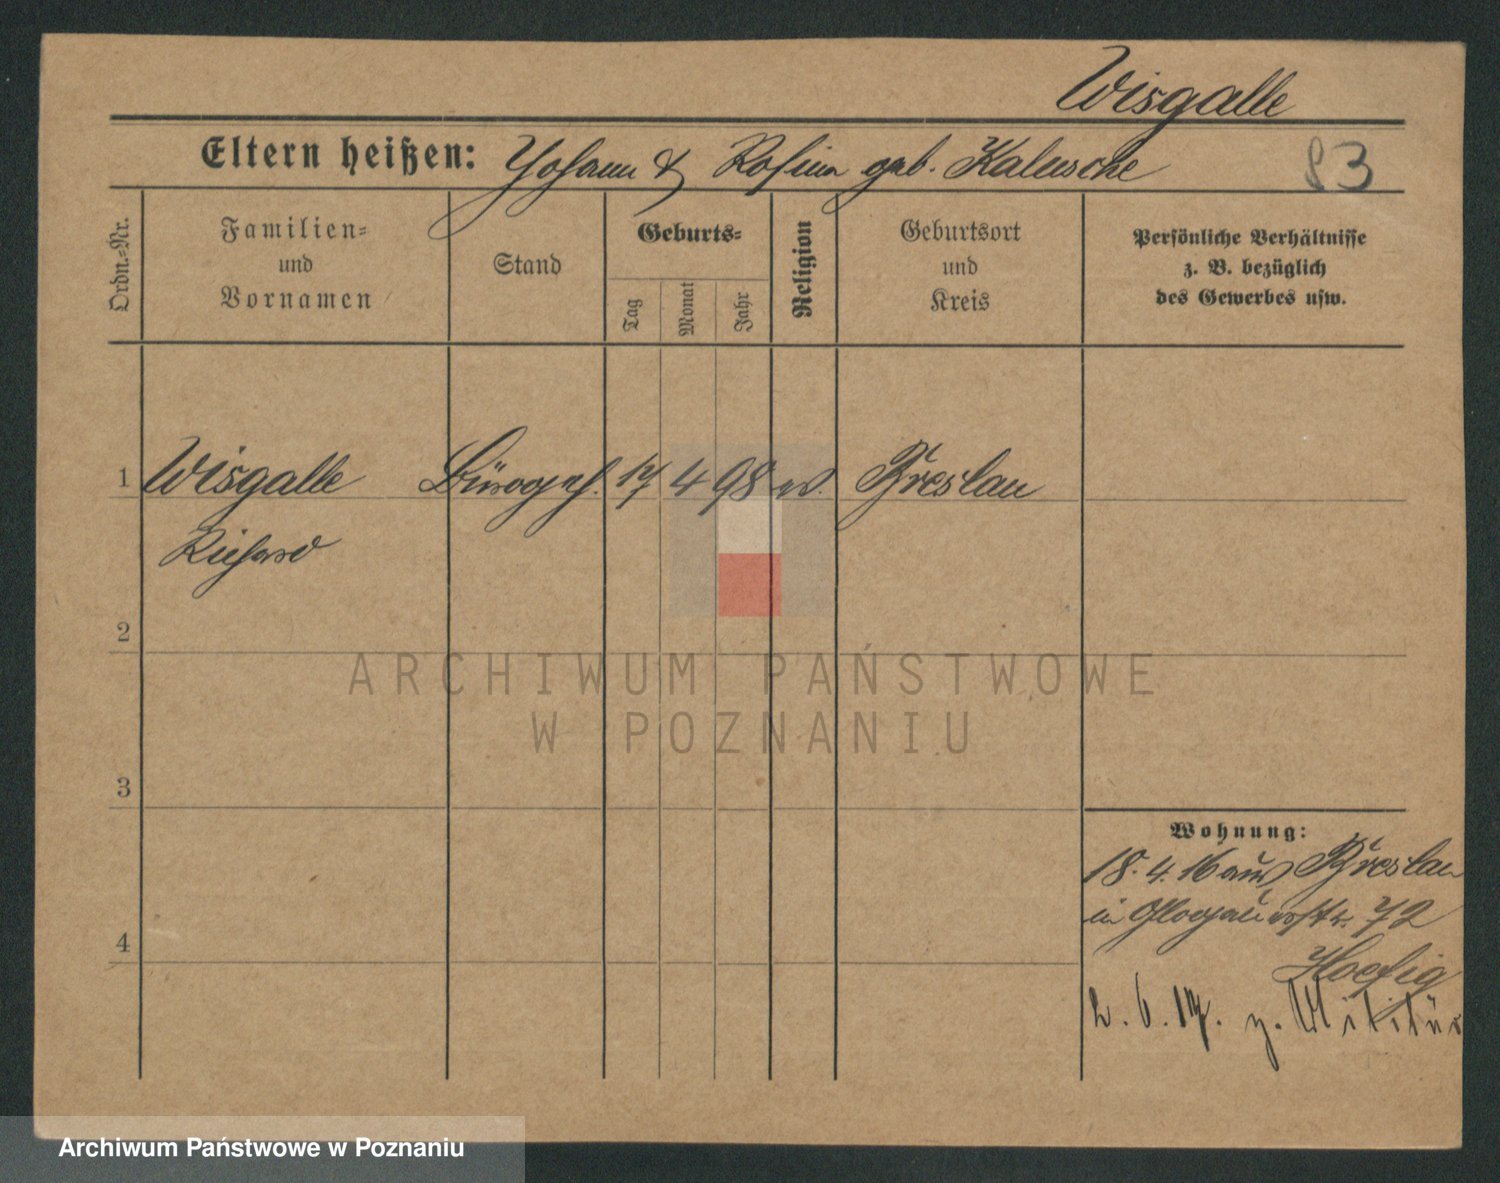 Wisgalle
Eltern heißen: Johann & Rosina geb. Kalusche
83
Ordn.-Nr.
Familien-
und
Vornamen
Stand
Geburts-
Tag
Monat
Jahr
Religion
Geburtsort
und
Kreis
Persönliche Verhältnisse
z. B. bezüglich
des Gewerbes usw.
1 Wisgalle Bürogeh. 17 4 98 ev. Breslau
Richard
2
ARCHIWUM PAŃSTWOWE
W POZNANIU
3
Wohnung:
18. 4. 16 aus Breslau
in Glogauerstr. 72
Hoefig
4
2. 6. 17. z. Militär
Archiwum Państwowe w Poznaniu